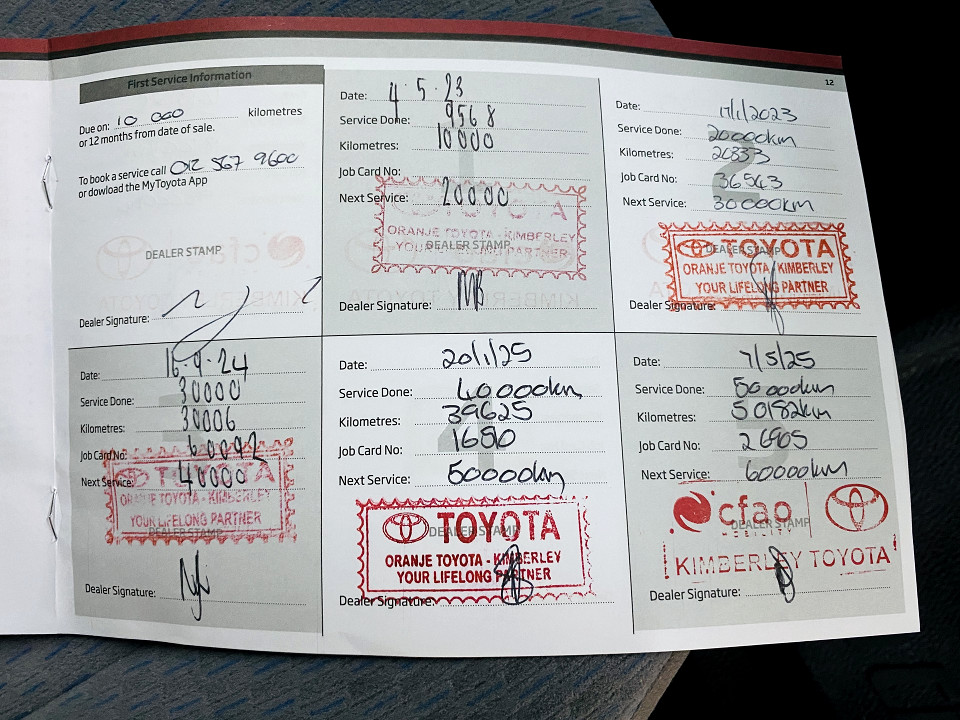 12
First Service Information
Due on: 10 000 kilometres
or 12 months from date of sale.
To book a service call 012 367 9600
or dowload the MyToyota App
DEALER STAMP
Dealer Signature:
Date: 4.5.23
Service Done: 9568
Kilometres: 10000
Job Card No:
Next Service: 20000
TOYOTA
ORANJE TOYOTA - KIMBERLEY
YOUR LIFELONG PARTNER
DEALER STAMP
Dealer Signature:
Date: 17/1/2023
Service Done: 20000km
Kilometres: 20833
Job Card No: 36543
Next Service: 30000km
DEALER STAMP
TOYOTA
ORANJE TOYOTA - KIMBERLEY
YOUR LIFELONG PARTNER
Dealer Signature:
Date: 16.9.24
Service Done: 30000
Kilometres: 30006
Job Card No: 60092
Next Service: 40000
TOYOTA
ORANJE TOYOTA - KIMBERLEY
YOUR LIFELONG PARTNER
DEALER STAMP
Dealer Signature:
Date: 20/1/25
Service Done: 40000km
Kilometres: 39625
Job Card No: 1650
Next Service: 50000km
DEALER STAMP
TOYOTA
ORANJE TOYOTA - KIMBERLEY
YOUR LIFELONG PARTNER
Dealer Signature:
Date: 7/5/25
Service Done: 50000km
Kilometres: 50182km
Job Card No: 26905
Next Service: 60000km
cfao
MOBILITY
DEALER STAMP
KIMBERLEY TOYOTA
Dealer Signature: